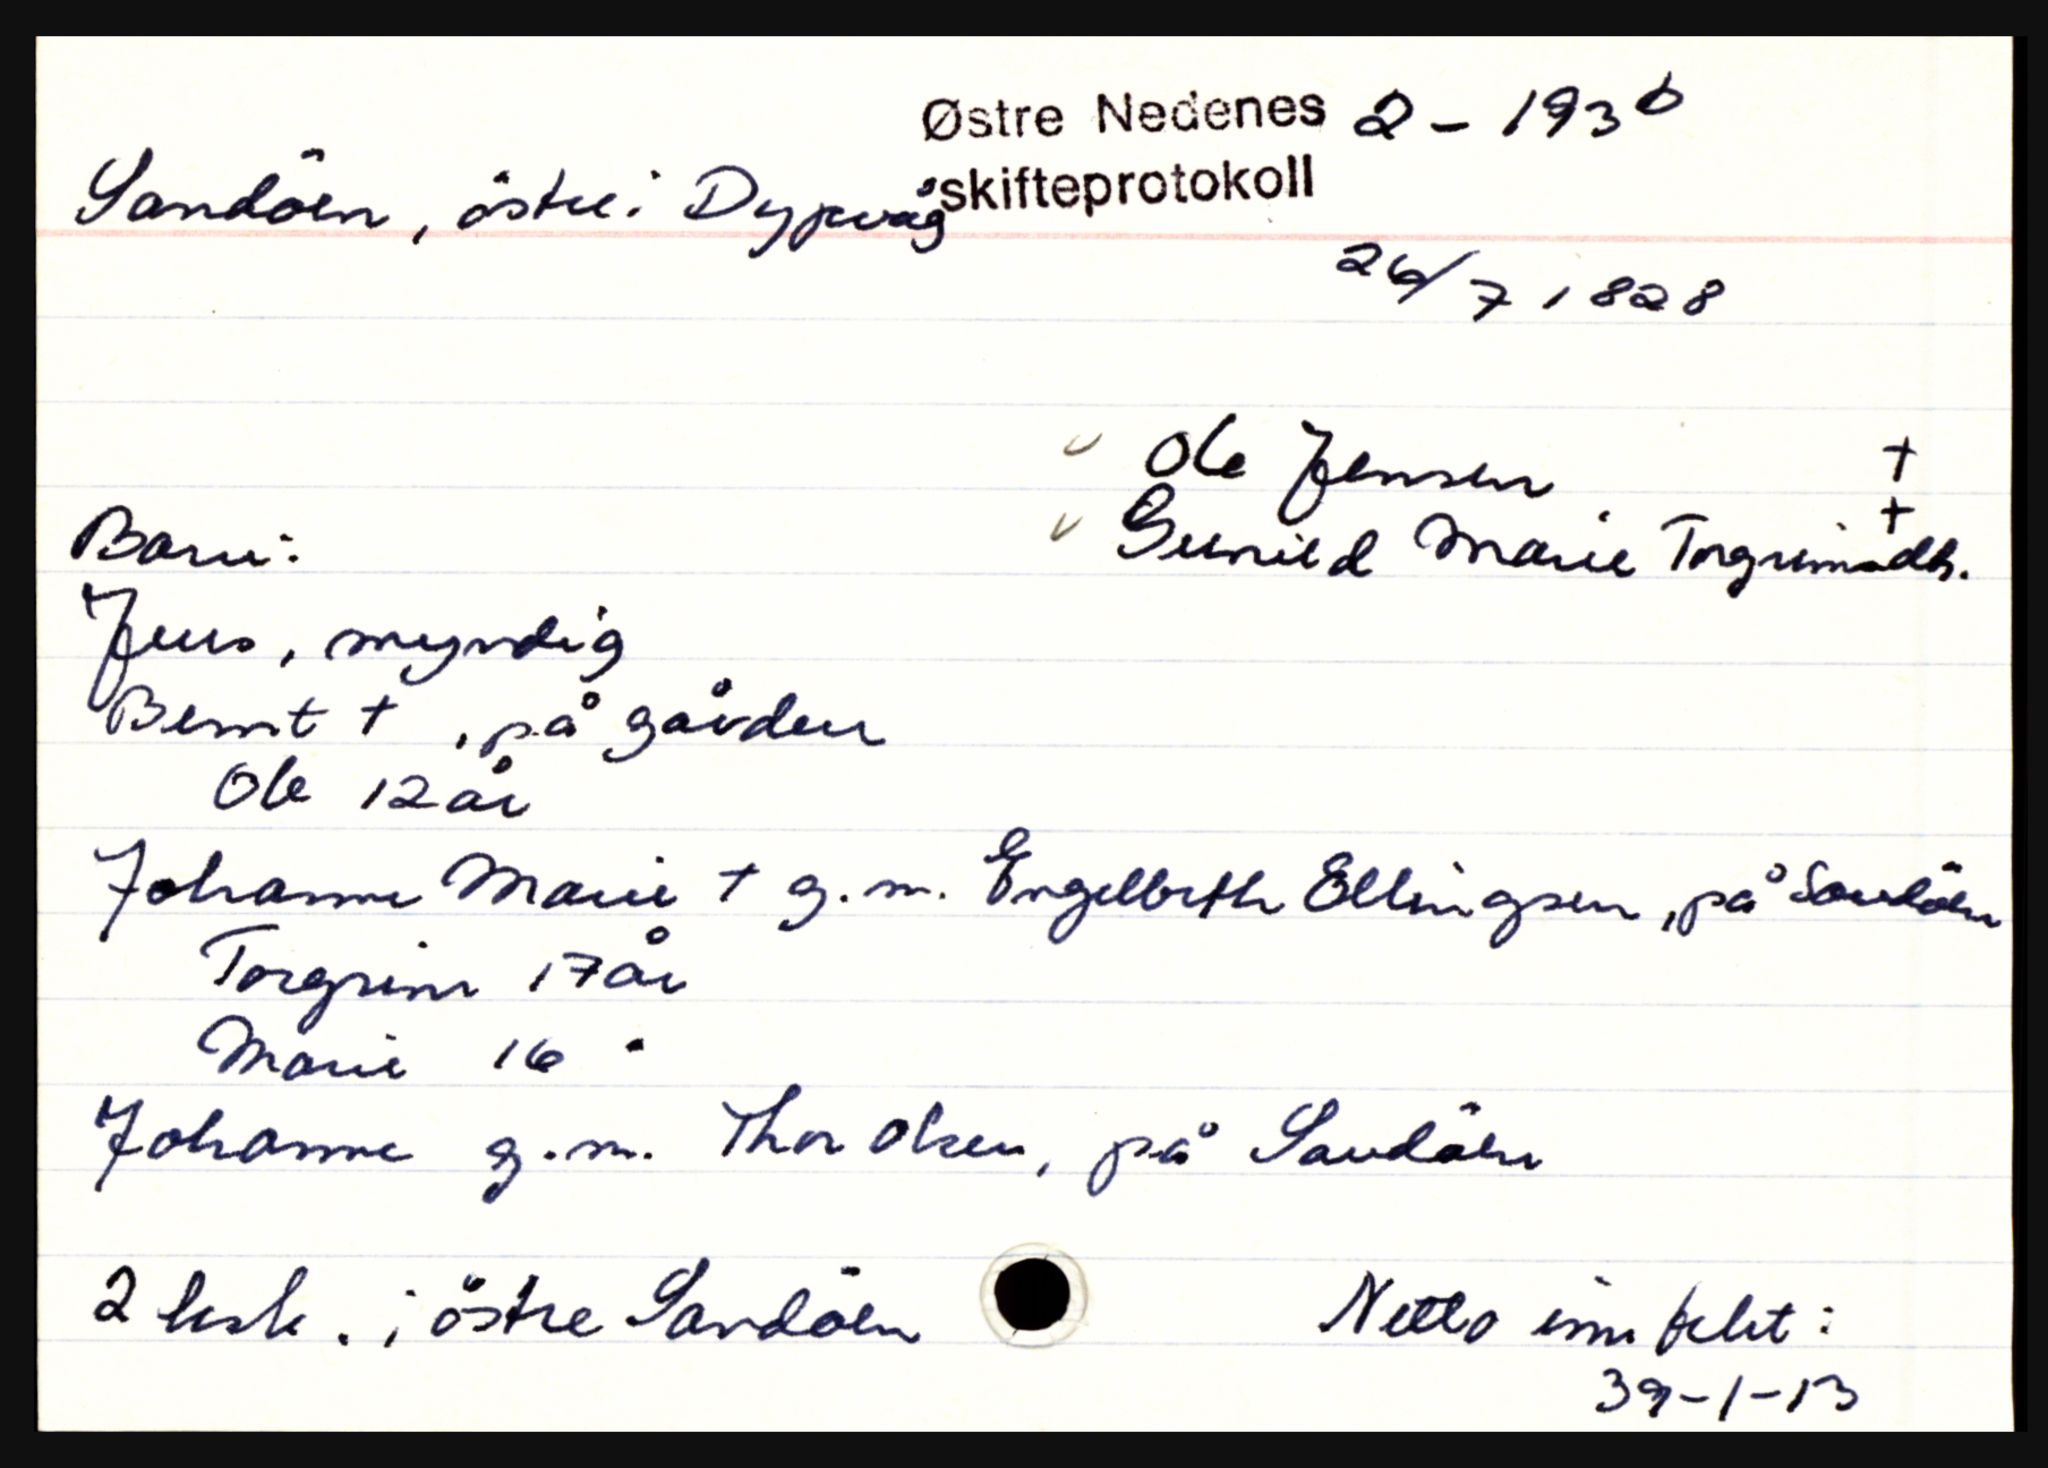 Østre Nedenes 2 - 193 b
skifteprotokoll
Sandöen, östre i Dypvåg
26/7 1828
Ole Jensen †
Gunild Marie Torgrimsdtr. †
Barn:
Jens, myndig
Bernt †, på gården
Ole 12 år
Johanne Marie † g.m. Engelbrth Ellingsen, på Sandöen
Torgrim 17 år
Marie 16 "
Johanne g.m. Thor Olsen, på Sandöen
2 lish. i östre Sandöen
Netto inn
39-1-13